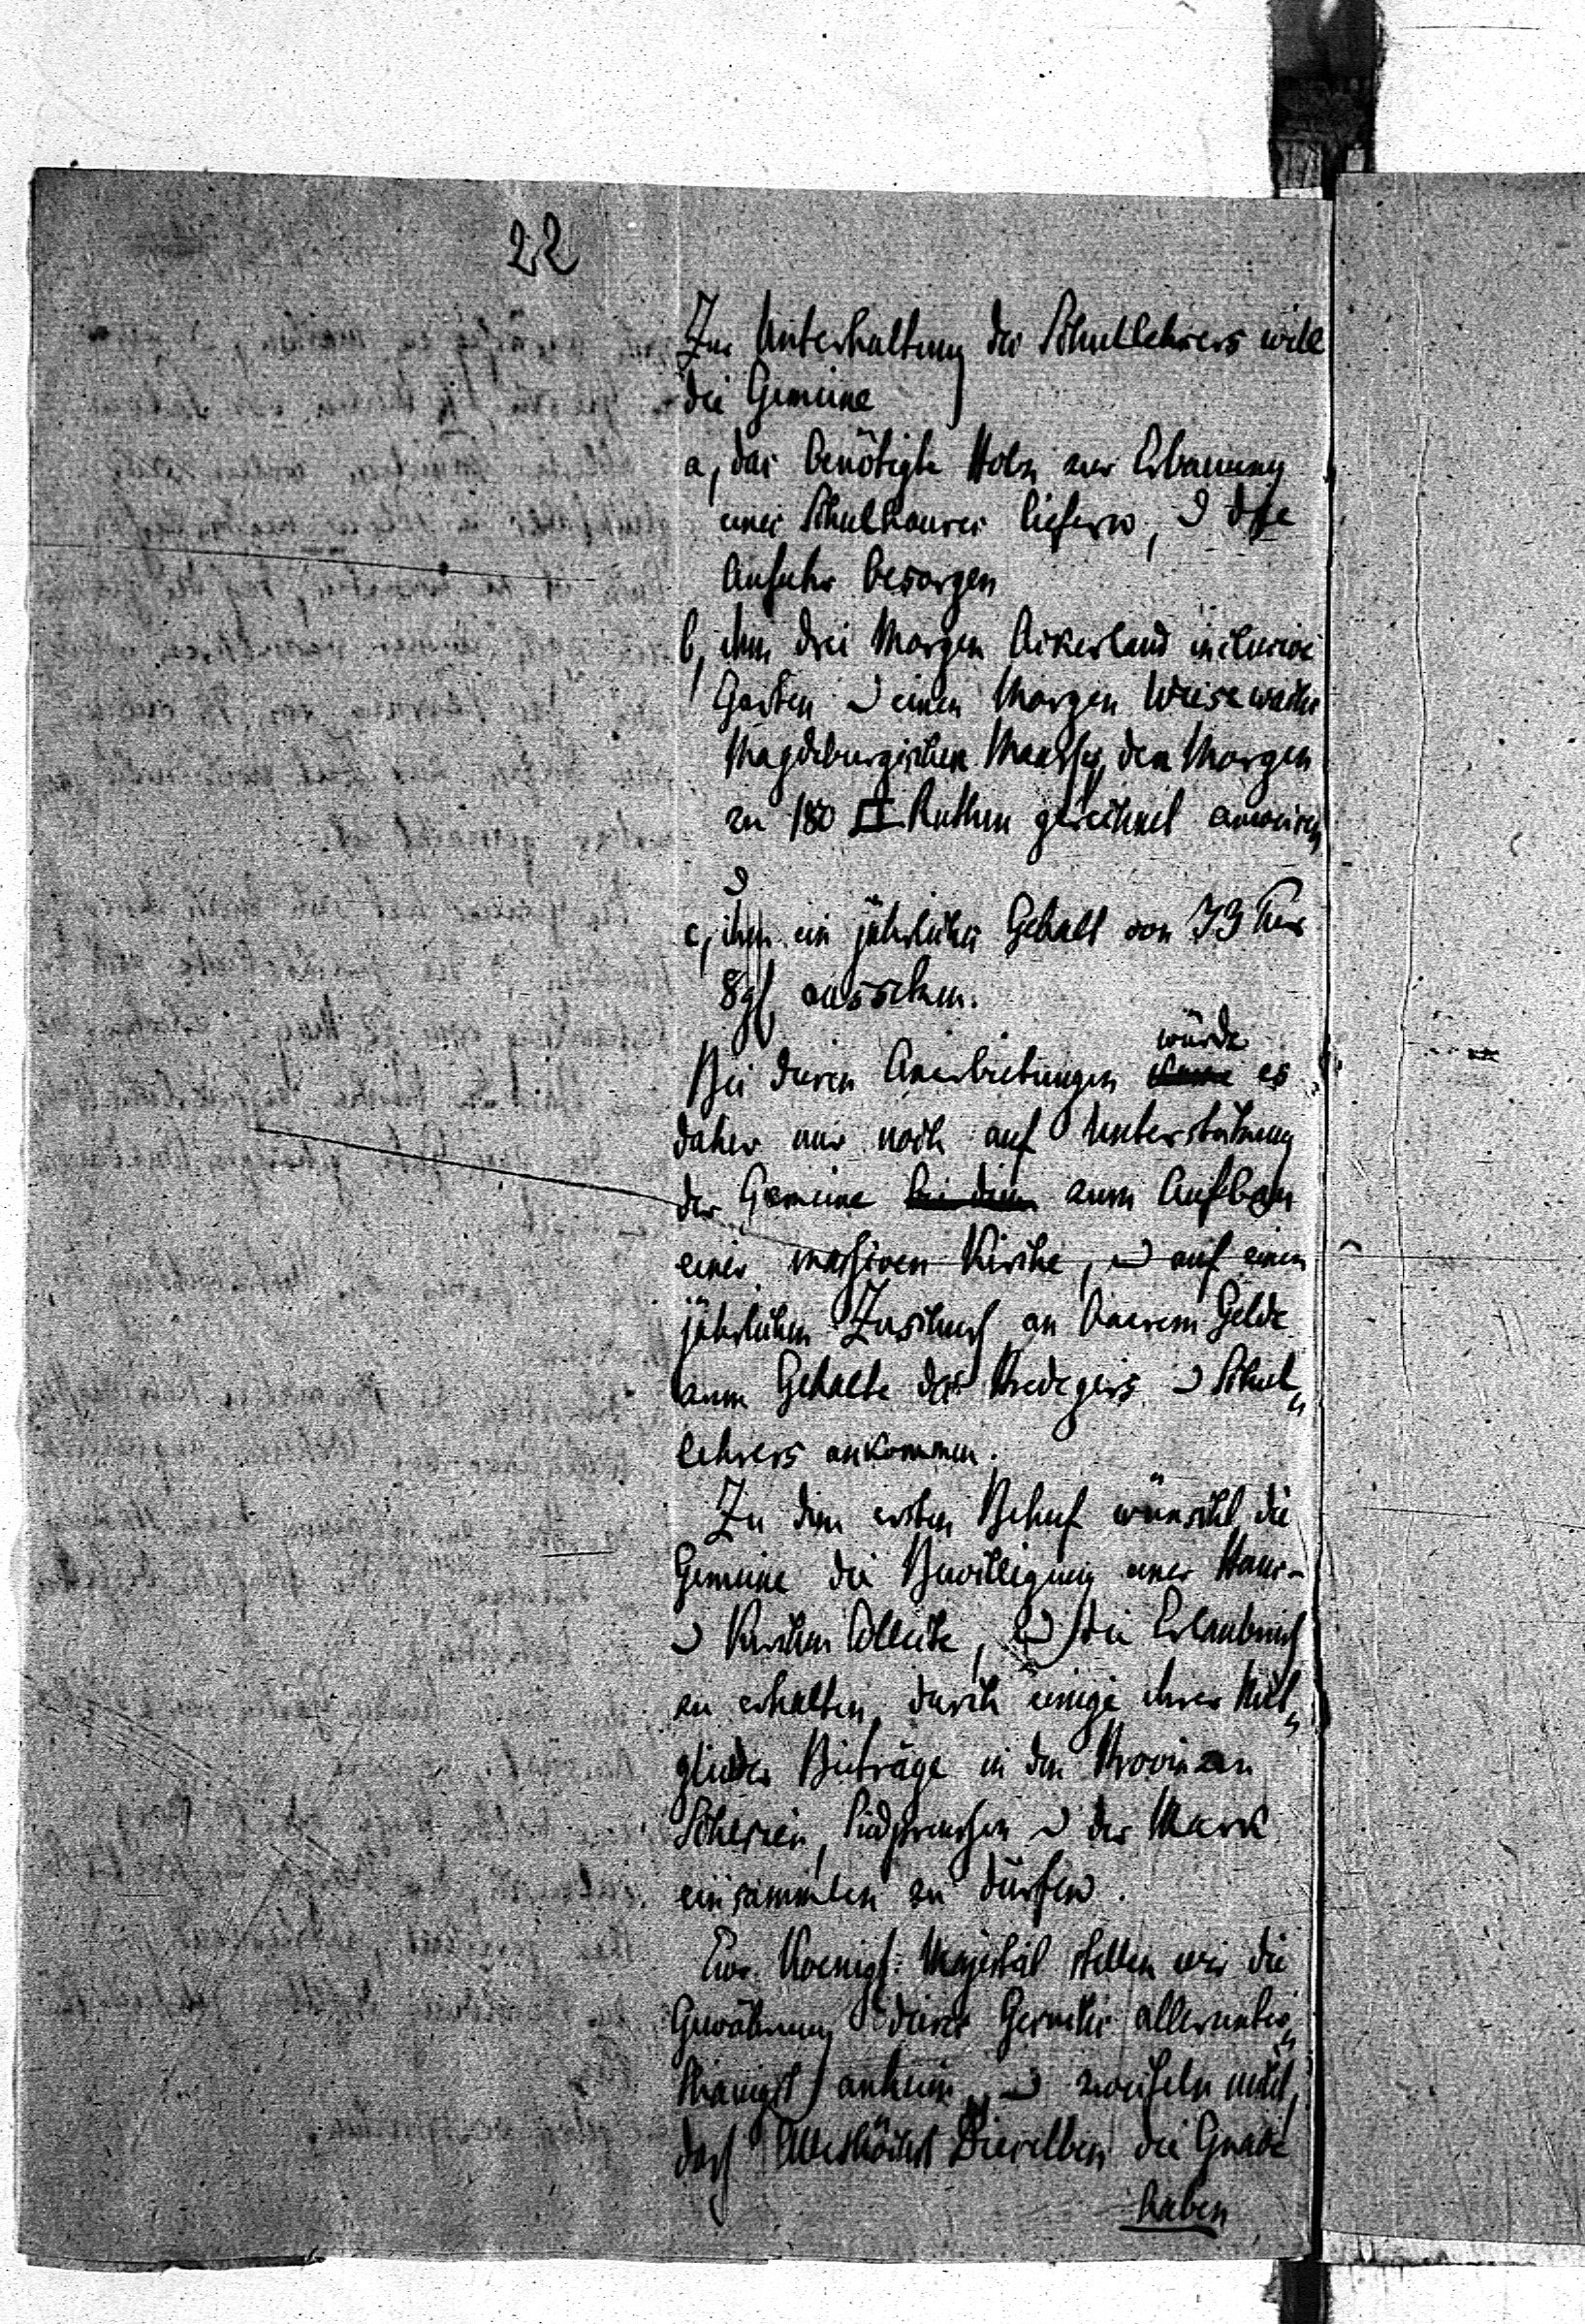 22
Zur Unterhaltung des Schullehrers will
die Gemeine
a, das benötigte Holz zur Erbauung
eines Schulhauses liefern, u die
Anfuhr besorgen
b, ihm drei Morgen Ackerland inclusive
Garten u einen Morgen Wiesewachs
Magdeburgischen Maasses, den Morgen
zu 180 □ Ruthen gerechnet anweisen
u
c, ihm ein jährliches Gehalt von 73 rtlr
8 gl aussetzen.
Bei diesen Anerbietungen würde es
daher nur noch auf Unterstützung
der Gemeine bei dem zum Aufbau
einer massiven Kirche, u auf einen
jährlichen Zuschuss an baarem Gelde
zum Gehalte des Predigers u Schul„
lehrers ankommen.
Zu dem ersten Behuf wünscht die
Gemeine die Bewilligung einer Haus-
u Kirchen Collecte, u die Erlaubniss
zu erhalten, durch einige ihrer Mit„
glieder Beiträge in den Provinzen
Schlesien, Südpreussen u der Mark
einsammlen zu dürfen.
Ew. Koenigl: Majestät stellen wir die
Gewährung dieses Gesuchs allerunter„
thänigst anheim, u zweifeln nicht,
dass Allerhöchst Dieselben die Gnade
haben